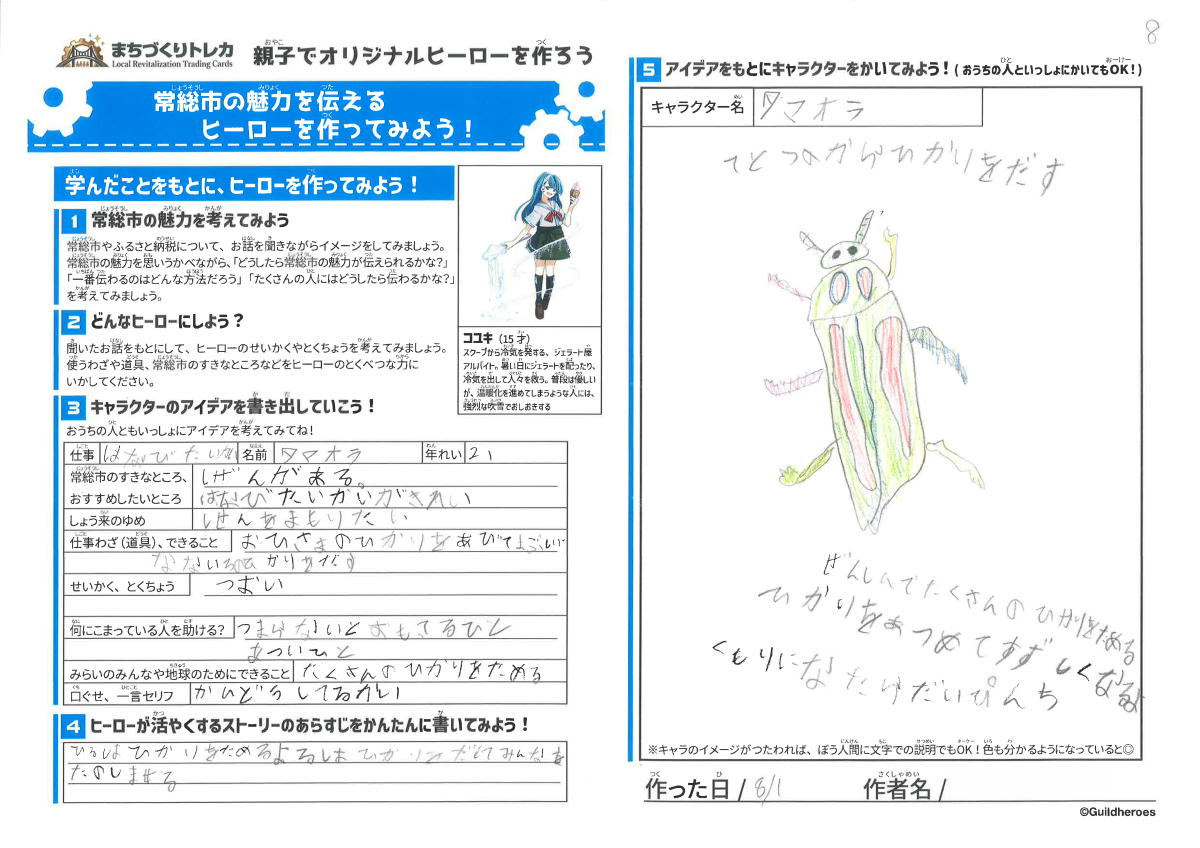 8
まちづくりトレカ
Local Revitalization Trading Cards
親子でオリジナルヒーローを作ろう
常総市の魅力を伝える
ヒーローを作ってみよう！
学んだことをもとに、ヒーローを作ってみよう！
1 常総市の魅力を考えてみよう
常総市やふるさと納税について、お話を聞きながらイメージをしてみましょう。
常総市の魅力を思いうかべながら、「どうしたら常総市の魅力が伝えられるかな？」
「一番伝わるのはどんな方法だろう」「たくさんの人にはどうしたら伝わるかな？」
を考えてみましょう。
2 どんなヒーローにしよう？
聞いたお話をもとにして、ヒーローのせいかくやとくちょうを考えてみましょう。
使うわざや道具、常総市のすきなところなどをヒーローのとくべつな力に
いかしてください。
ココキ（15才）
スクープから冷気を発する、ジェラート屋
アルバイト。暑い日にジェラートを配ったり、
冷気を出して人々を救う。普段は優しい
が、温暖化を進めてしまうような人には、
強烈な吹雪でおしおきする
3 キャラクターのアイデアを書き出していこう！
おうちの人ともいっしょにアイデアを考えてみてね！
仕事 はなびたいかい 名前 タマオラ 年れい 21
常総市のすきなところ、 しぜんがある。
おすすめしたいところ はなびたいかいがきれい
しょう来のゆめ しぜんをまもりたい
仕事わざ（道具）、できること おひさまのひかりをあびてまぶしい
なないろのひかりをだす
せいかく、とくちょう つよい
何にこまっている人を助ける？ つまらないとおもってるひと
あついひと
みらいのみんなや地球のためにできること たくさんのひかりをためる
口ぐせ、一言セリフ
4 ヒーローが活やくするストーリーのあらすじをかんたんに書いてみよう！
ひるはひかりをためるよるはひかりをだしてみんなを
たのしませる
5 アイデアをもとにキャラクターをかいてみよう！（おうちの人といっしょにかいてもOK！）
キャラクター名 タマオラ
てとつのからひかりをだす
ぜんしんでたくさんのひかりをためる
ひかりをあつめてすずしくなるよ
くもりになたらだいぴんち
※キャラのイメージがつたわれば、ぼう人間に文字での説明でもOK！色も分かるようになっていると◎
作った日 / 8/1 作者名 /
©Guildheroes